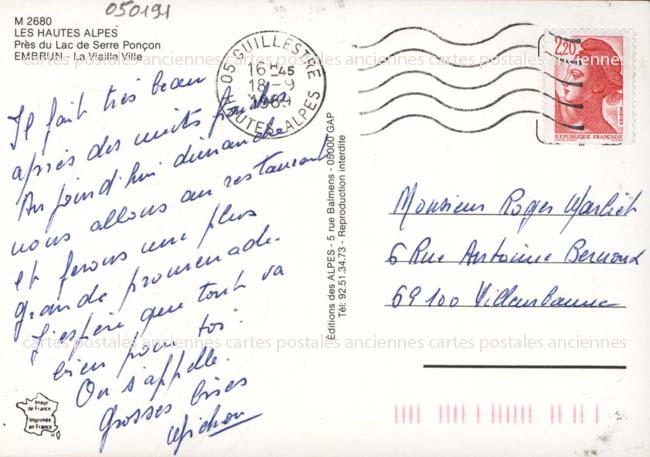 050191
M 2680
LES HAUTES ALPES
Près du Lac de Serre Ponçon
EMBRUN - La Vieille Ville
05 GUILLESTRE
16H45
18-9
1989
HAUTES ALPES
2,20
REPUBLIQUE FRANÇAISE
cartes postales anciennes cartes postales anciennes cartes postales anciennes
Il fait très beau
après des nuits fraîches
Aujourd'hui dimanche
nous allons au restaurant
et ferons une plus
grande promenade.
J'espère que tout va
bien pour toi.
On s'appelle.
Grosses bises
Michou
Éditions des ALPES - 5 rue Balmens - 05000 GAP
Tél: 92.51.34.73 - Reproduction interdite
Monsieur Roger
6 Rue Antoine Bernoux
69100 Villeurbanne
cartes postales anciennes cartes postales anciennes cartes postales anciennes
Imprimée
en France